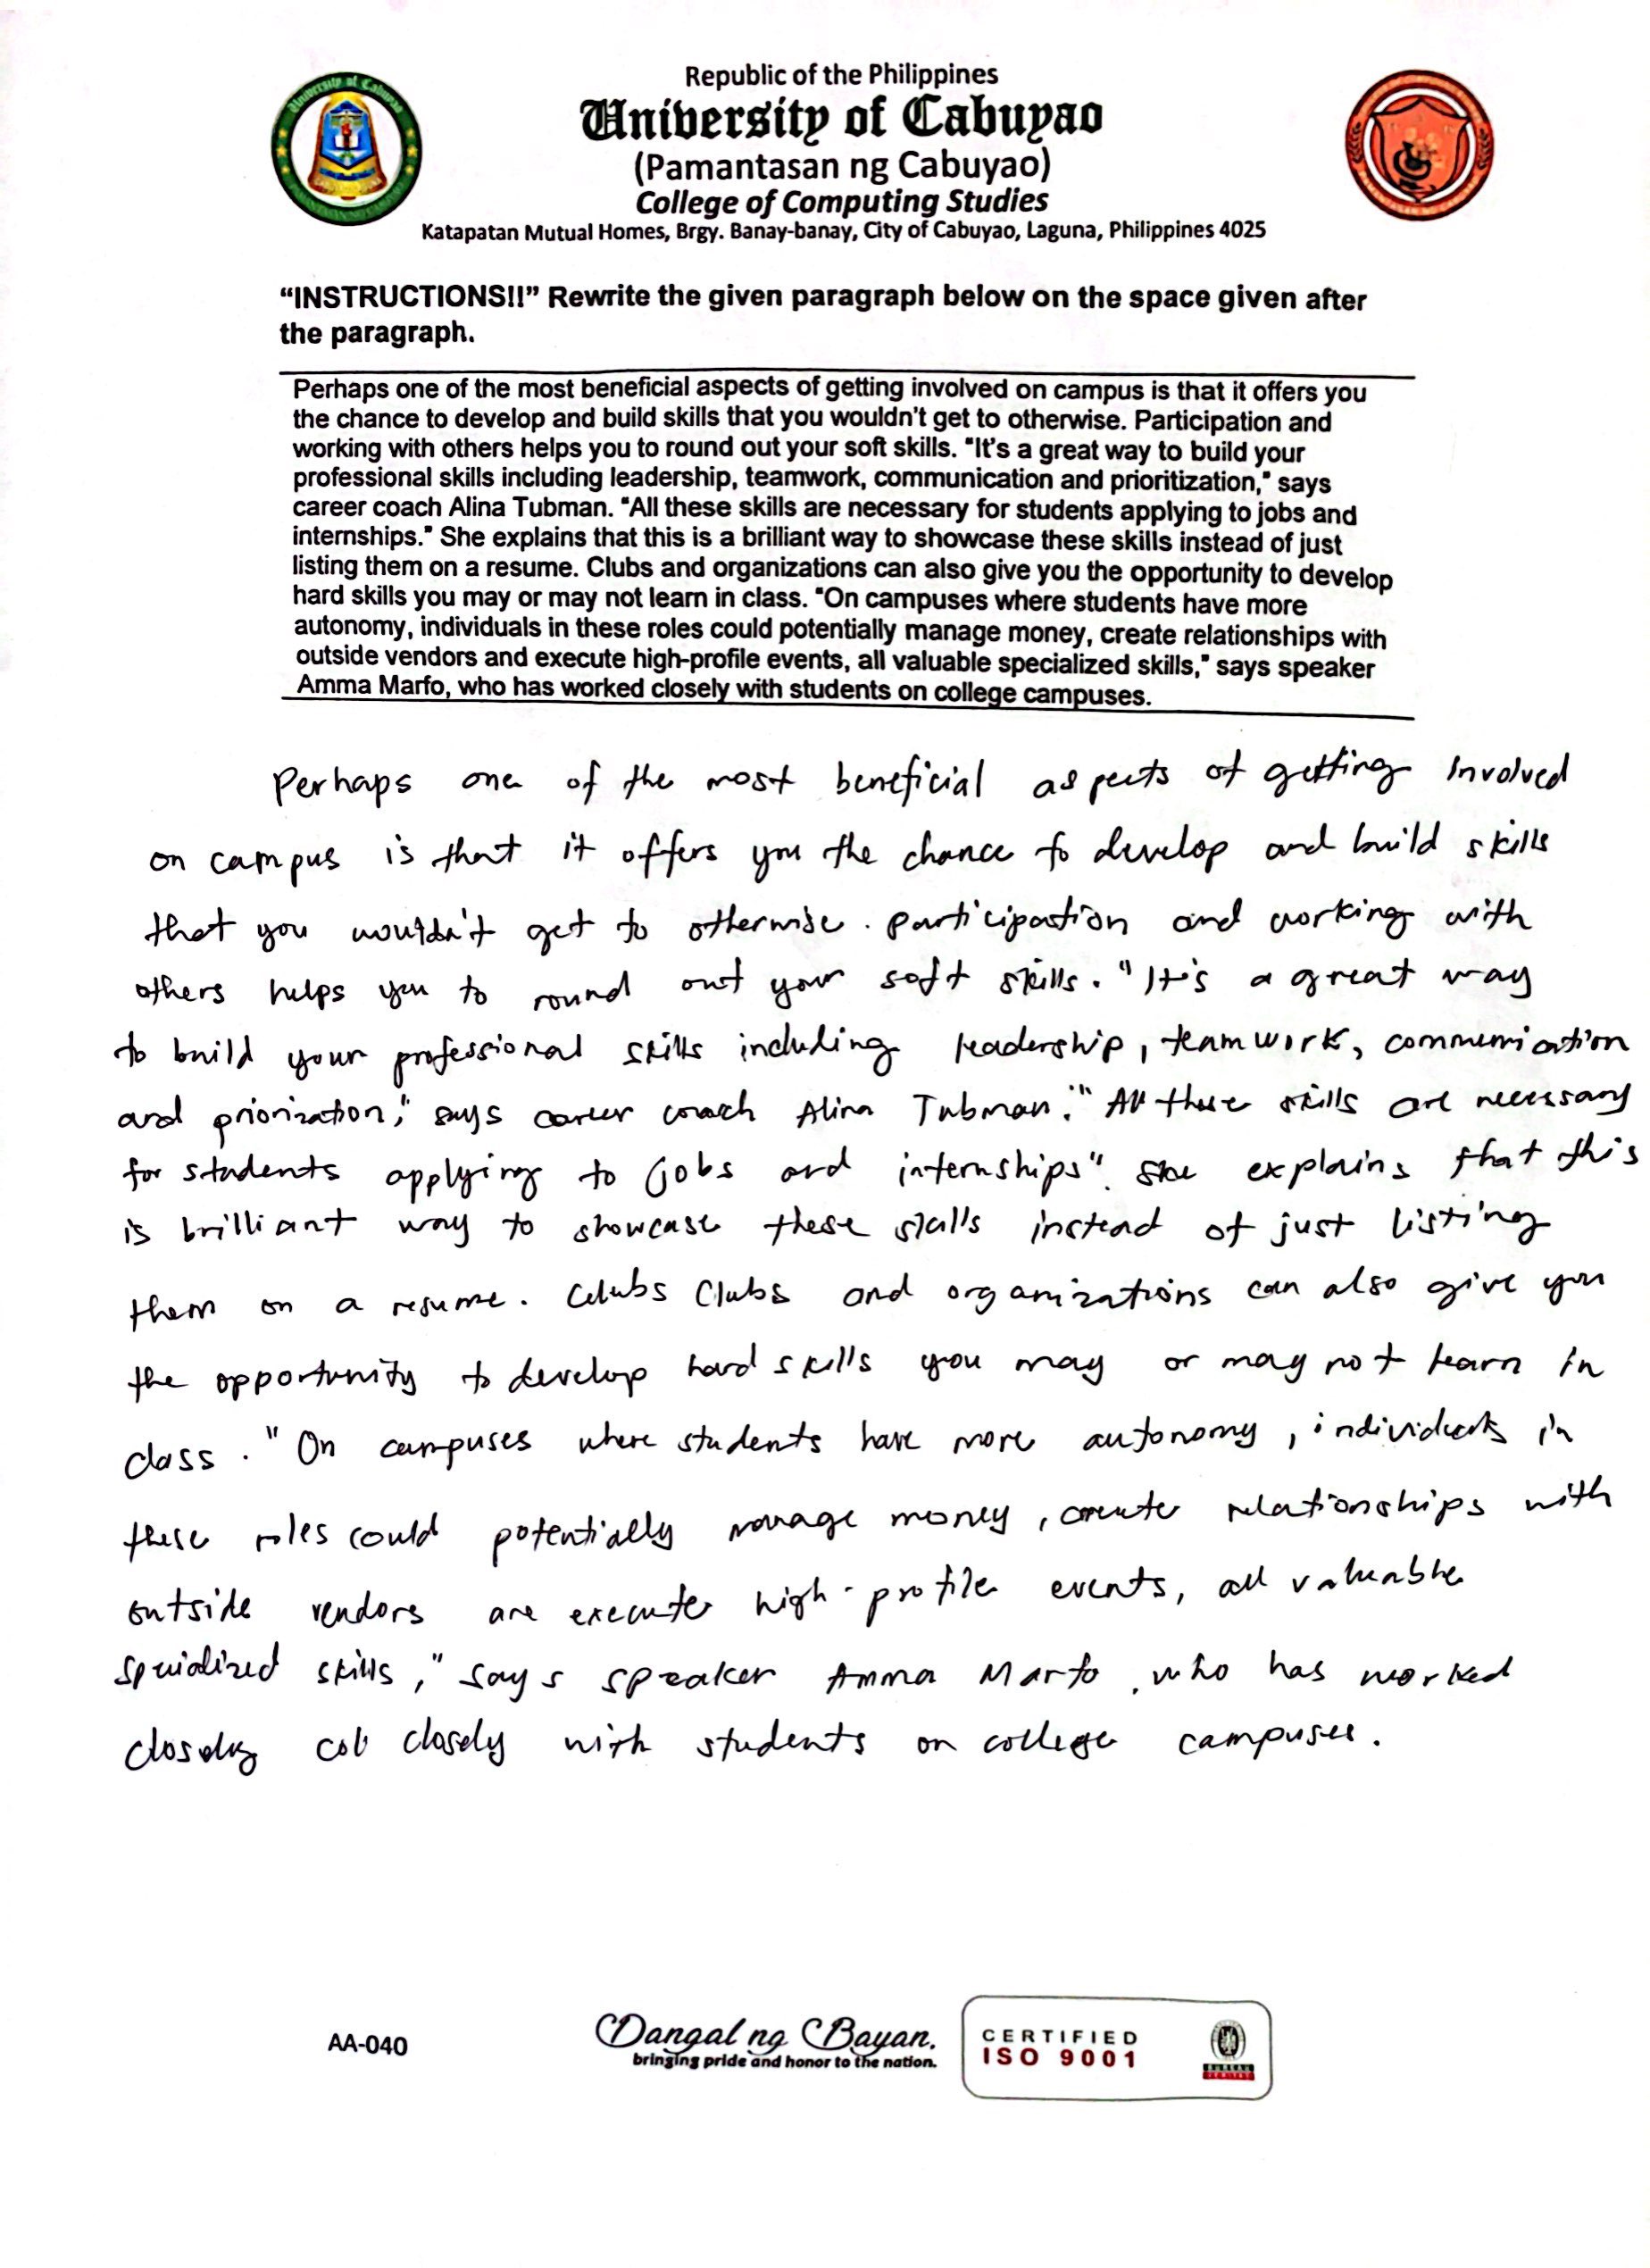 Republic of the Philippines
University of Cabuyao
(Pamantasan ng Cabuyao)
College of Computing Studies
Katapatan Mutual Homes, Brgy. Banay-banay, City of Cabuyao, Laguna, Philippines 4025
University of Cabuyao
“INSTRUCTIONS!!” Rewrite the given paragraph below on the space given after
the paragraph.
Perhaps one of the most beneficial aspects of getting involved on campus is that it offers you
the chance to develop and build skills that you wouldn't get to otherwise. Participation and
working with others helps you to round out your soft skills. "It's a great way to build your
professional skills including leadership, teamwork, communication and prioritization," says
career coach Alina Tubman. "All these skills are necessary for students applying to jobs and
internships." She explains that this is a brilliant way to showcase these skills instead of just
listing them on a resume. Clubs and organizations can also give you the opportunity to develop
hard skills you may or may not learn in class. "On campuses where students have more
autonomy, individuals in these roles could potentially manage money, create relationships with
outside vendors and execute high-profile events, all valuable specialized skills," says speaker
Amma Marfo, who has worked closely with students on college campuses.
Perhaps one of the most beneficial aspects of getting involved
on campus is that it offers you the chance to develop and build skills
that you wouldn't get to otherwise. participation and working with
others helps you to round out your soft skills. "It's a great way
to build your professional skills including leadership, teamwork, communication
and priorization," says career coach Alina Tubman." "All these skills are necessary
for students applying to jobs and internships". She explains that this
is brilliant way to showcase these skills instead of just listing
them on a resume. Celubs Clubs and organizations can also give you
the opportunity to develop hard skills you may or may not learn in
class. "On campuses where students have more autonomy, individuals in
these roles could potentially manage money, create relationships with
outside vendors are execute high-profile events, all valuable
specialized skills," says speaker Amma Marfo, who has worked
closely col closely with students on college campuses.
AA-040
Dangal ng Bayan.
bringing pride and honor to the nation.
CERTIFIED
ISO 9001
BUREAU
VERITAS